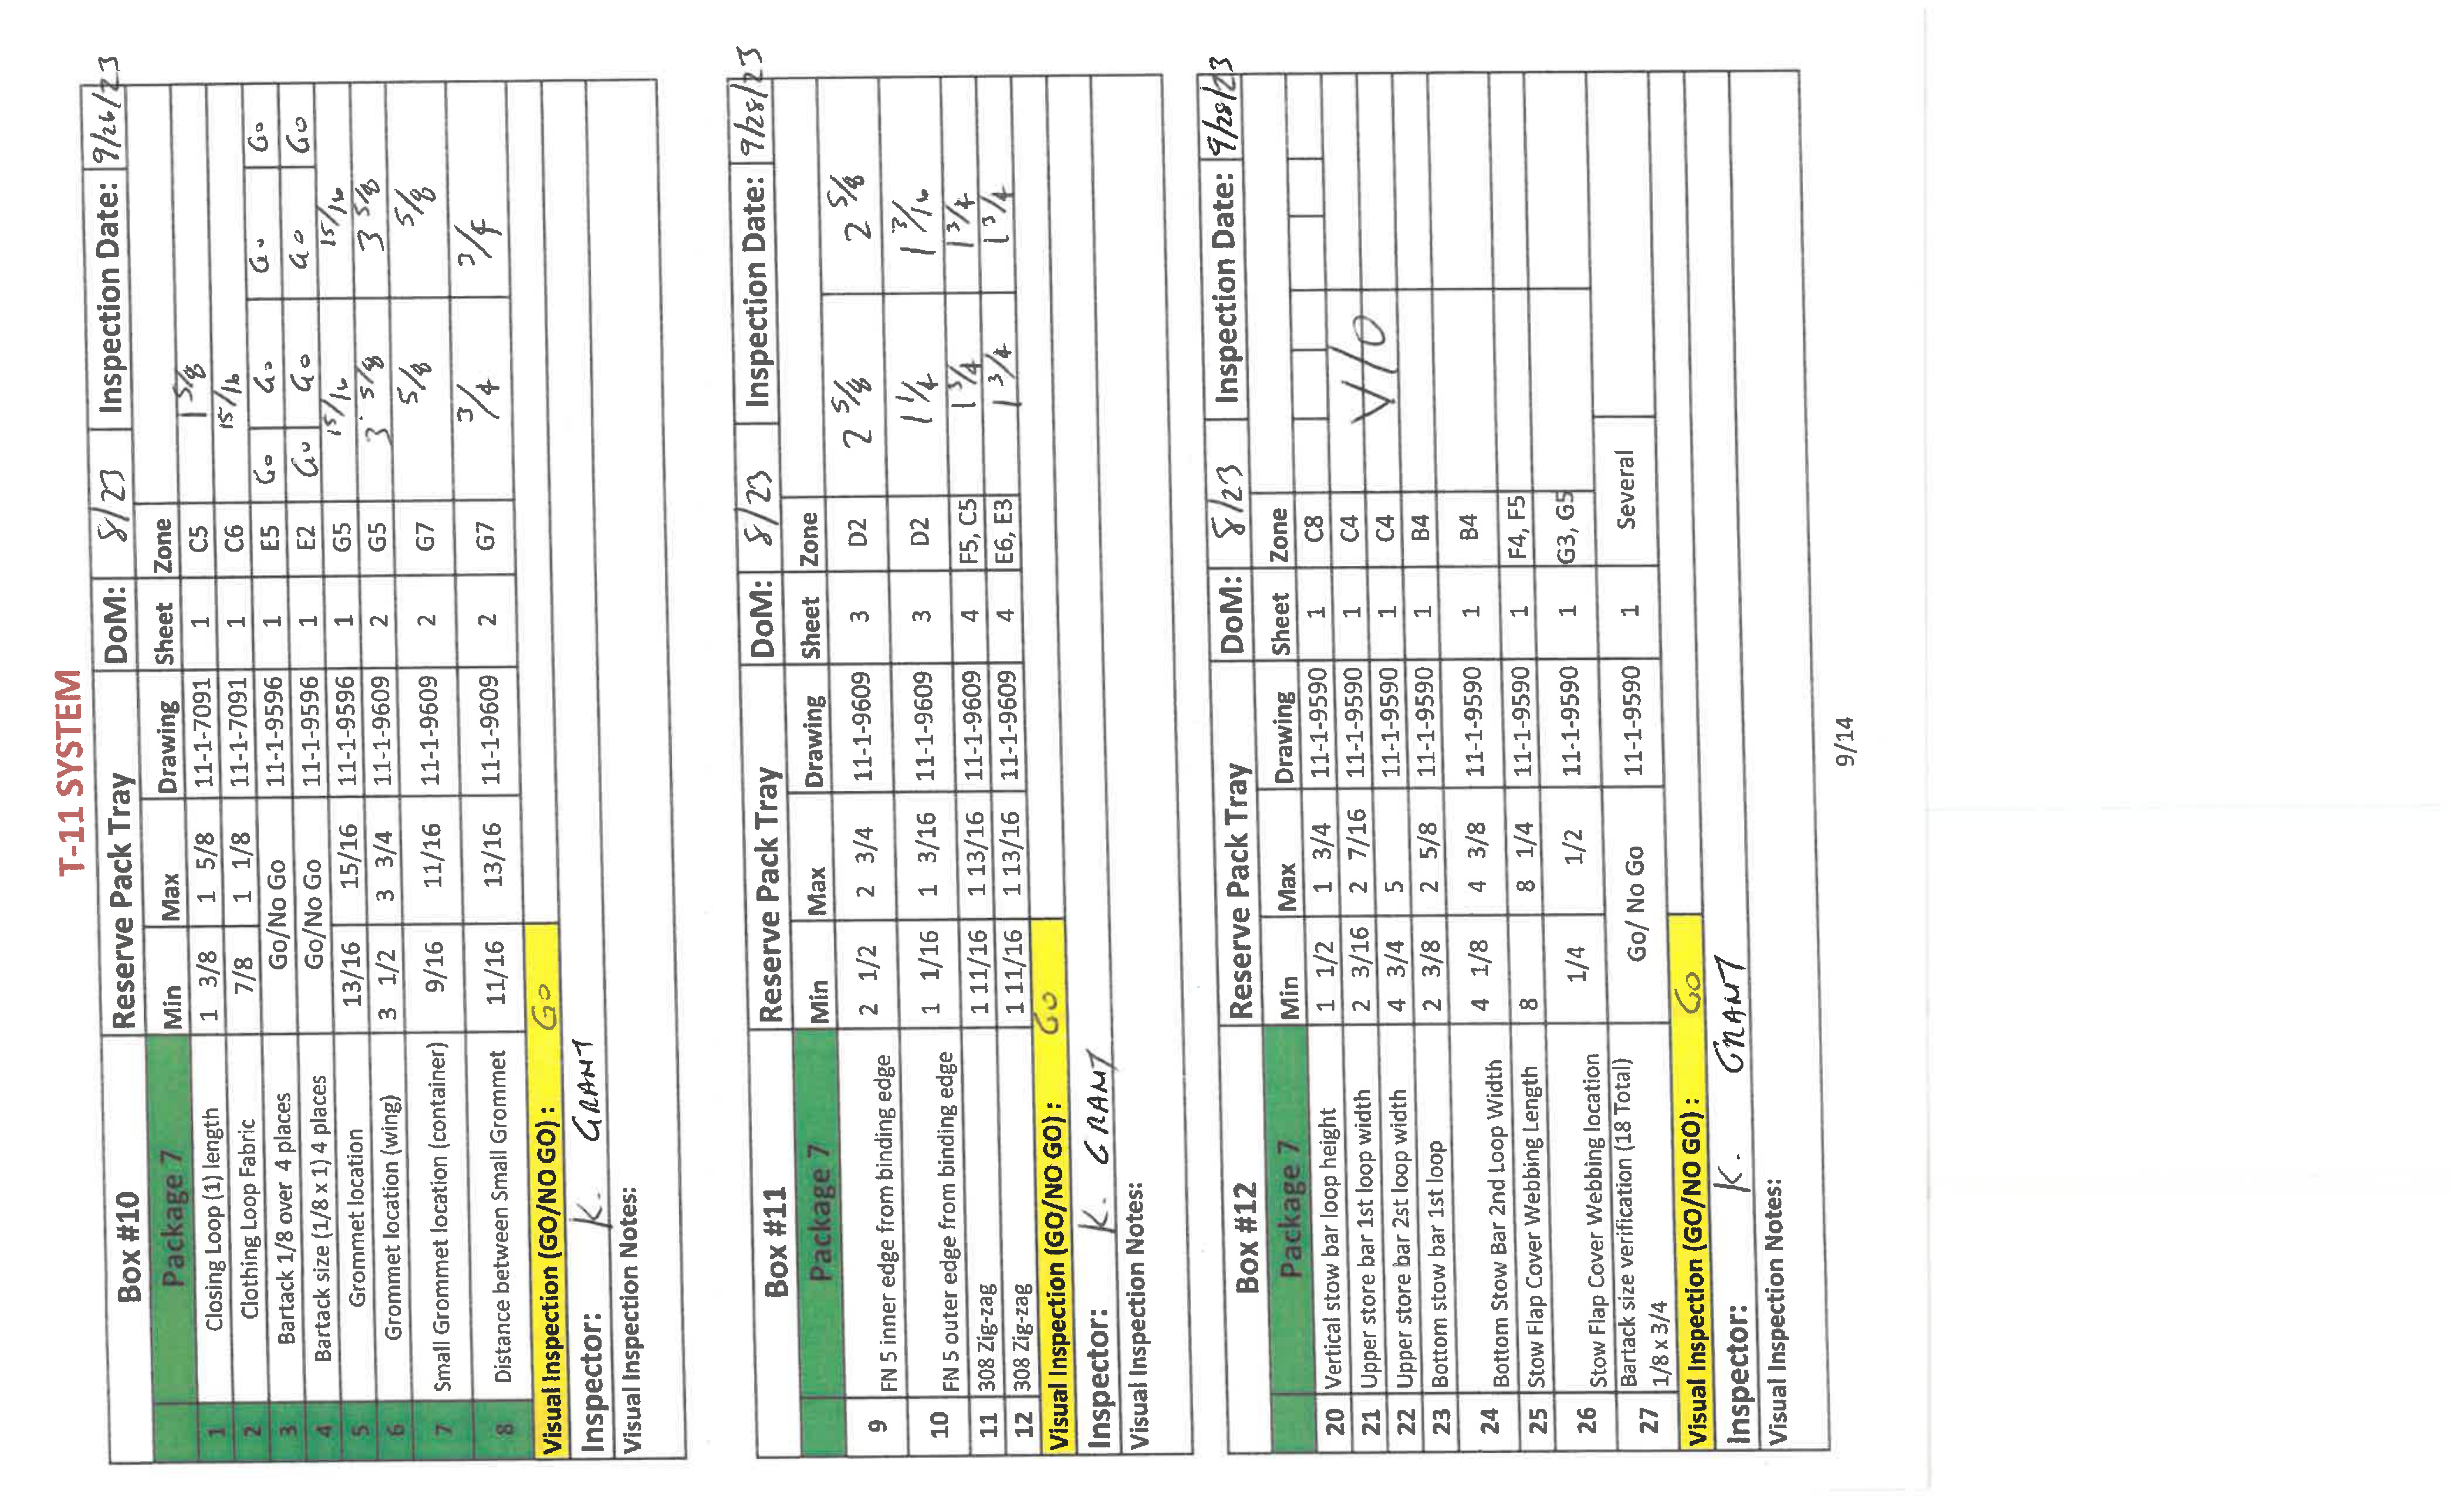 T-11 SYSTEM
Box #10 Reserve Pack Tray DoM: 8/23 Inspection Date: 9/26/23
Package 7 Min Max Drawing Sheet Zone
1 Closing Loop (1) length 1 3/8 1 5/8 11-1-7091 1 C5 1 5/8
2 Clothing Loop Fabric 7/8 1 1/8 11-1-7091 1 C6 15/16
3 Bartack 1/8 over 4 places Go/No Go 11-1-9596 1 E5 Go Go Go Go
4 Bartack size (1/8 x 1) 4 places Go/No Go 11-1-9596 1 E2 Go Go Go Go
5 Grommet location 13/16 15/16 11-1-9596 1 G5 15/16 15/16
6 Grommet location (wing) 3 1/2 3 3/4 11-1-9609 2 G5 3 5/8 3 5/8
7 Small Grommet location (container) 9/16 11/16 11-1-9609 2 G7 5/8 5/8
8 Distance between Small Grommet 11/16 13/16 11-1-9609 2 G7 3/4 3/4
Visual Inspection (GO/NO GO) : GO
Inspector: K. GRANT
Visual Inspection Notes:
Box #11 Reserve Pack Tray DoM: 8/23 Inspection Date: 9/28/23
Package 7 Min Max Drawing Sheet Zone
9 FN 5 inner edge from binding edge 2 1/2 2 3/4 11-1-9609 3 D2 2 5/8 2 5/8
10 FN 5 outer edge from binding edge 1 1/16 1 3/16 11-1-9609 3 D2 1 1/4 1 3/16
11 308 Zig-zag 1 11/16 1 13/16 11-1-9609 4 F5, C5 1 3/4 1 3/4
12 308 Zig-zag 1 11/16 1 13/16 11-1-9609 4 E6, E3 1 3/4 1 3/4
Visual Inspection (GO/NO GO) : GO
Inspector: K. GRANT
Visual Inspection Notes:
Box #12 Reserve Pack Tray DoM: 8/23 Inspection Date: 9/28/23
Package 7 Min Max Drawing Sheet Zone
20 Vertical stow bar loop height 1 1/2 1 3/4 11-1-9590 1 C8
21 Upper store bar 1st loop width 2 3/16 2 7/16 11-1-9590 1 C4
22 Upper store bar 2st loop width 4 3/4 5 11-1-9590 1 C4 V/O
23 Bottom stow bar 1st loop 2 3/8 2 5/8 11-1-9590 1 B4
24 Bottom Stow Bar 2nd Loop Width 4 1/8 4 3/8 11-1-9590 1 B4
25 Stow Flap Cover Webbing Length 8 8 1/4 11-1-9590 1 F4, F5
26 Stow Flap Cover Webbing location 1/4 1/2 11-1-9590 1 G3, G5
27 Bartack size verification (18 Total) 1/8 x 3/4 Go/ No Go 11-1-9590 1 Several
Visual Inspection (GO/NO GO) : GO
Inspector: K. GRANT
Visual Inspection Notes:
9/14